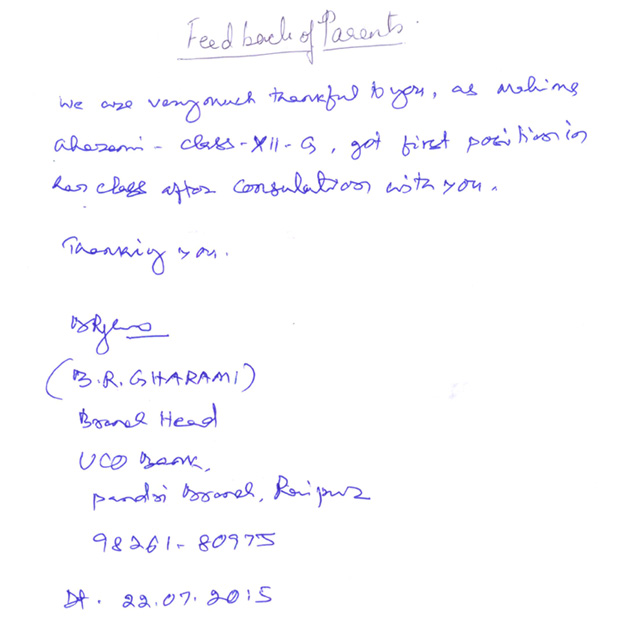 Feed back of Parents.
we are very much thankful to you, as Mohima
Gharami - class - XII - G, got first position in
her class after consulation with you.
Thanking you.
(B.R. GHARAMI)
Branch Head
UCO Bank,
pandri Branch, Raipur
98261-80975
Dt. 22.07.2015